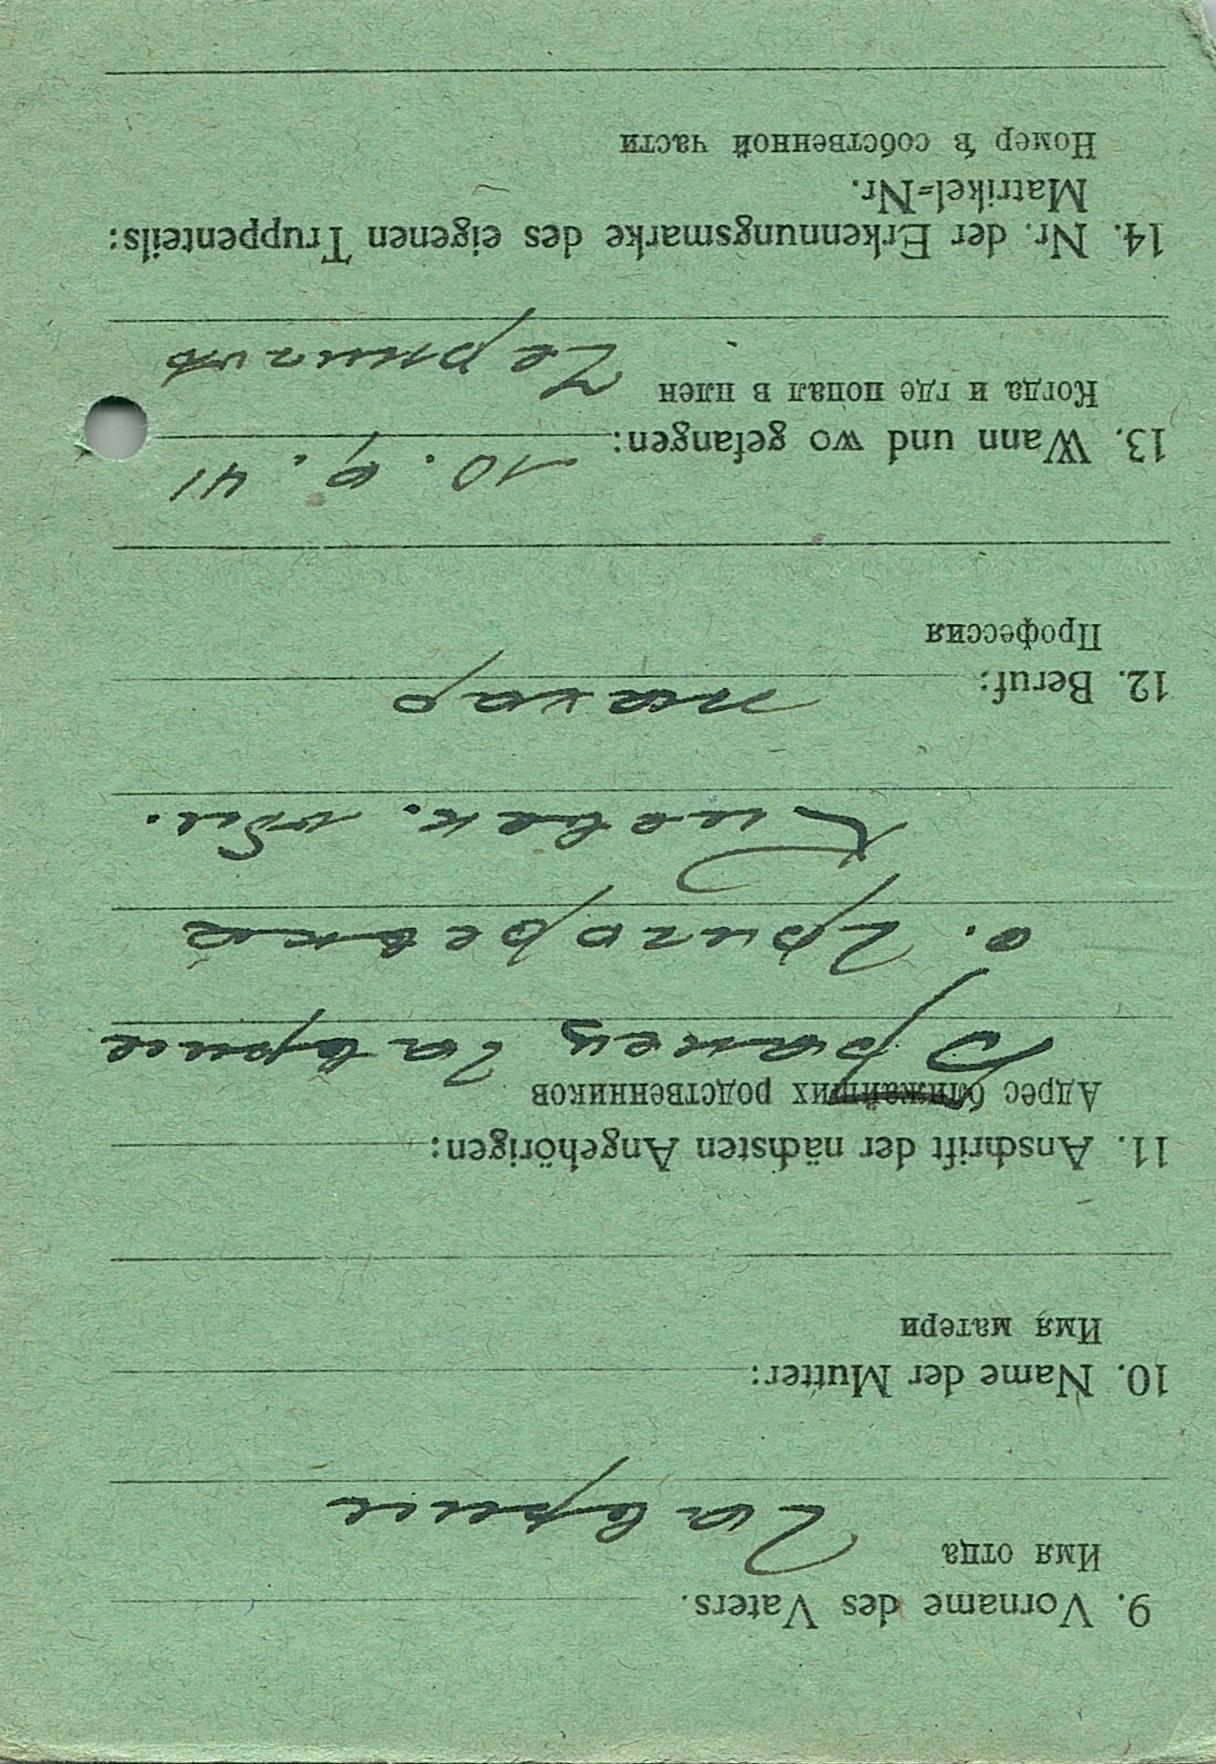 9. Vorname des Vaters.
Имя отца
Гаврии
10. Name der Mutter:
Имя матери
11. Anschrift der nächsten Angehörigen:
Адрес ближайших родственников
Гаврии
с. Григоревка
Киевск. обл.
12. Beruf:
пахар
Профессия
13. Wann und wo gefangen:
10. 9. 41
Когда и где попал в плен
14. Nr. der Erkennungsmarke des eigenen Truppenteils:
Matrikel=Nr.
Номер в собственной части